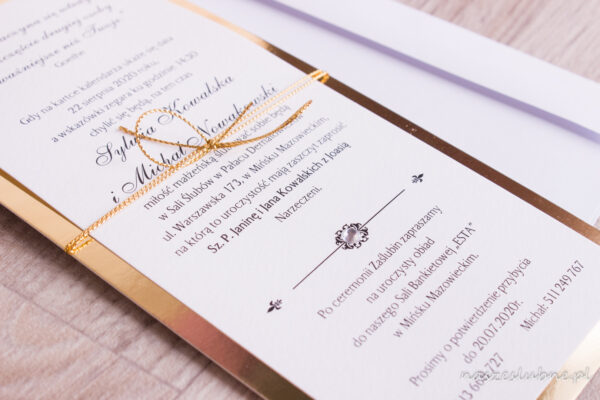 szczęście drugiej osoby
ważniejsze niż Twoje"
Goethe
Gdy na kartce kalendarza ukaże się data
22 sierpnia 2020 roku,
a wskazówki zegara ku godzinie 14:30
chylić się będą, na ten czas
Sylwia Kowalska
i Michał Nowakowski
miłość małżeńską ślubować sobie będą
w Sali Ślubów w Pałacu
ul. Warszawska 173, w Mińsku Mazowieckim,
na którą to uroczystość mają zaszczyt zaprosić
Sz. P. Janinę i Jana Kowalskich z Joasią
Narzeczeni.
Po ceremonii Zaślubin zapraszamy
na uroczysty obiad
do naszego Sali Bankietowej „ESTA"
w Mińsku Mazowieckim.
Prosimy o potwierdzenie przybycia
do 20.07.2020r.
Michał: 511 249 767
naszeslubne.pl